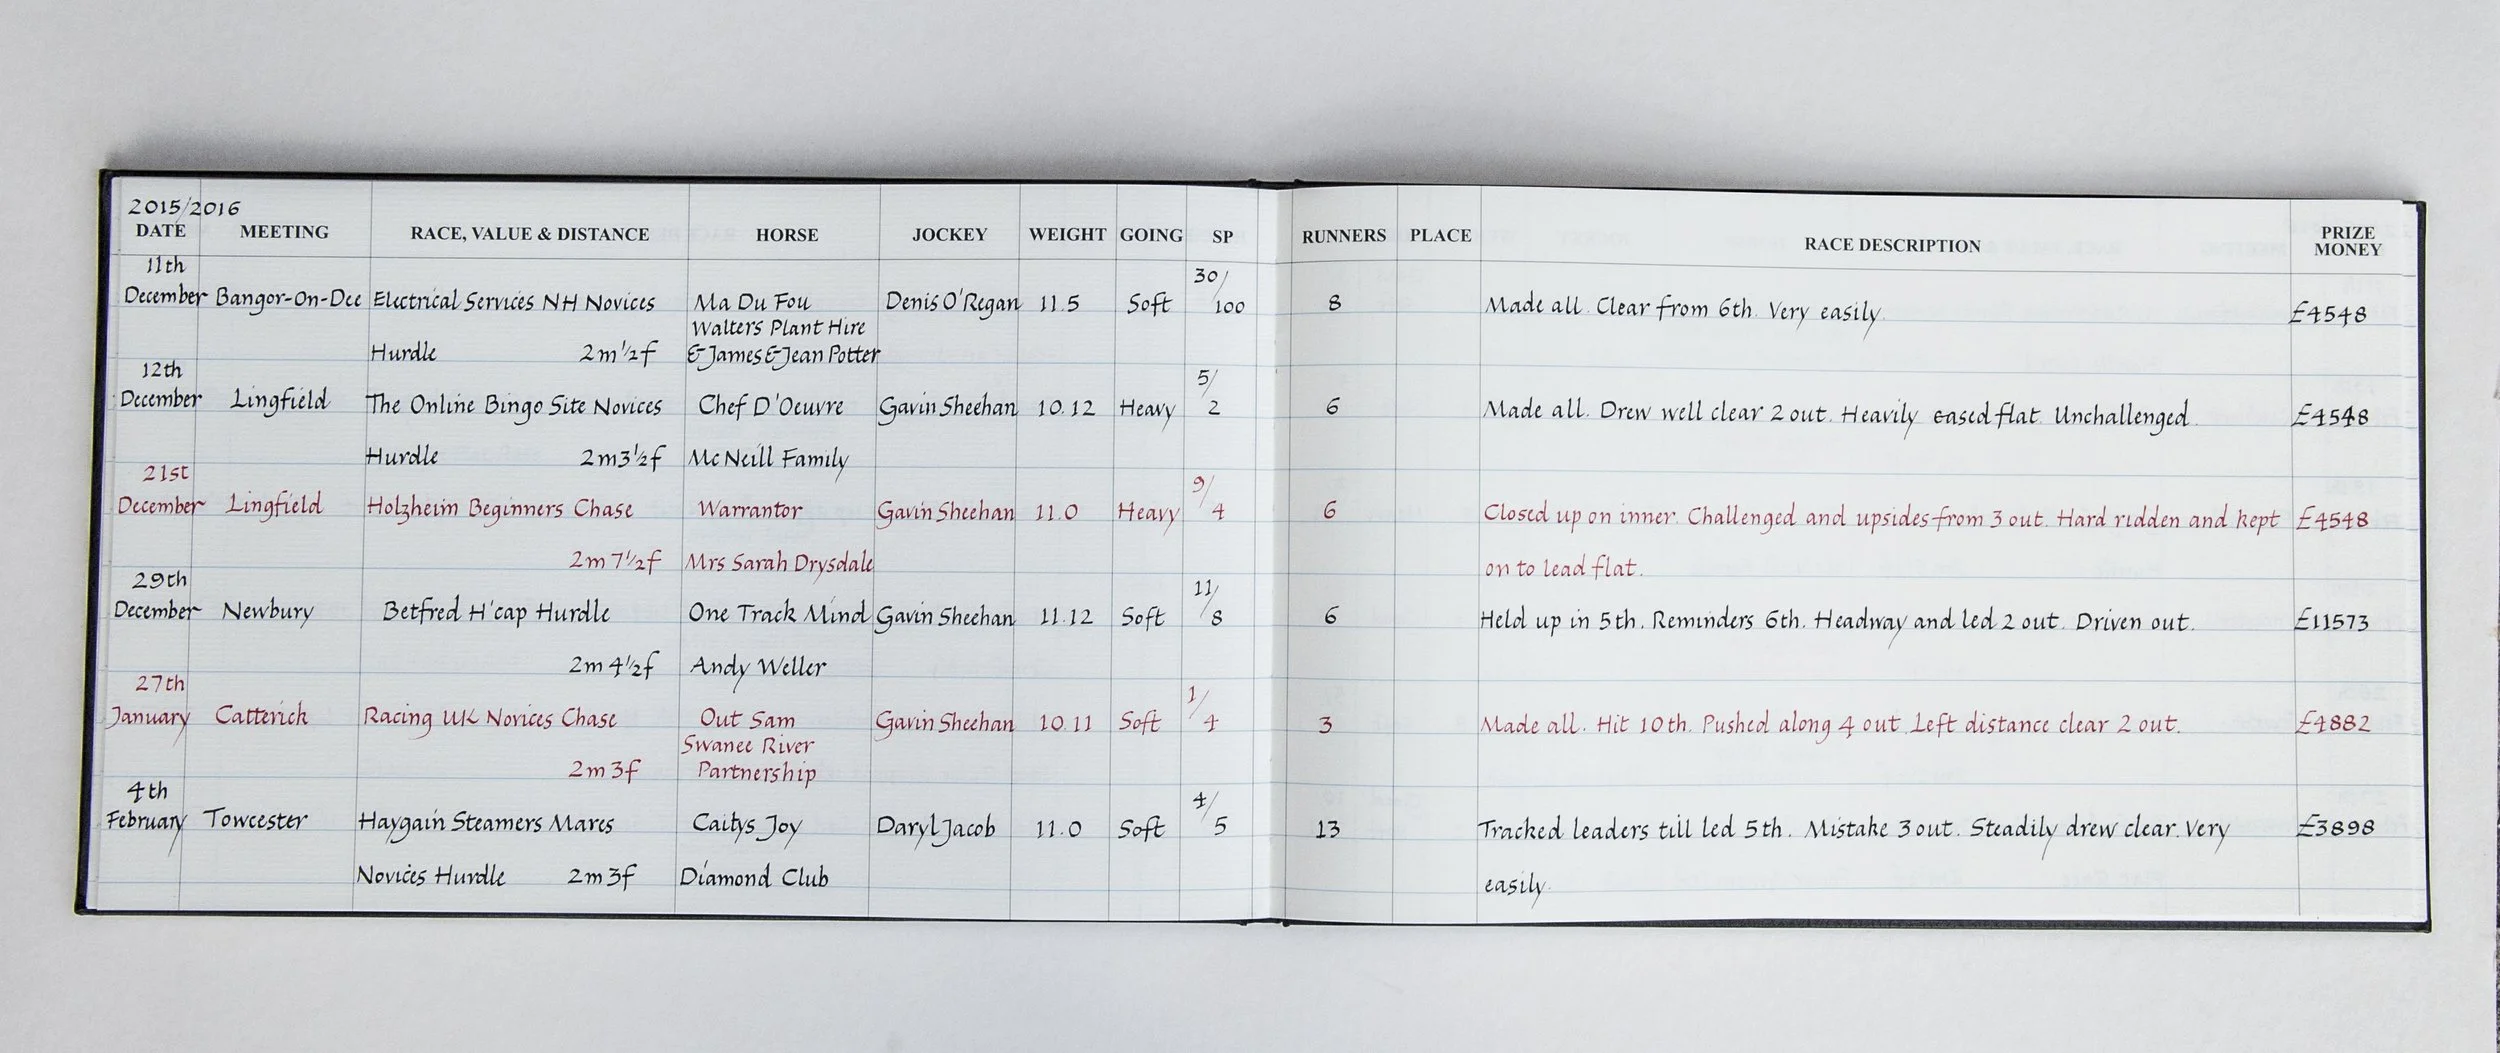 2015/2016
DATE MEETING RACE, VALUE & DISTANCE HORSE JOCKEY WEIGHT GOING SP RUNNERS PLACE RACE DESCRIPTION PRIZE MONEY
11th 30/
December Bangor-On-Dee Electrical Services NH Novices Ma Du Fou Denis O'Regan 11.5 Soft 100 8 Made all. Clear from 6th. Very easily. £4548
Walters Plant Hire
Hurdle 2m½f & James & Jean Potter
12th 5/
December Lingfield The Online Bingo Site Novices Chef D'Oeuvre Gavin Sheehan 10.12 Heavy 2 6 Made all. Drew well clear 2 out. Heavily eased flat. Unchallenged. £4548
Hurdle 2m3½f McNeill Family
21st 9/
December Lingfield Holzheim Beginners Chase Warrantor Gavin Sheehan 11.0 Heavy 4 6 Closed up on inner. Challenged and upsides from 3 out. Hard ridden and kept £4548
2m 7½f Mrs Sarah Drysdale on to lead flat.
29th 11/
December Newbury Betfred H'cap Hurdle One Track Mind Gavin Sheehan 11.12 Soft 8 6 Held up in 5th. Reminders 6th. Headway and led 2 out. Driven out. £11573
2m 4½f Andy Weller
27th 1/
January Catterick Racing UK Novices Chase Out Sam Gavin Sheehan 10.11 Soft 4 3 Made all. Hit 10th. Pushed along 4 out. Left distance clear 2 out. £4882
Swanee River
2m 3f Partnership
4th 4/
February Towcester Haygain Steamers Mares Caitys Joy Daryl Jacob 11.0 Soft 5 13 Tracked leaders till led 5th. Mistake 3 out. Steadily drew clear. Very £3898
Novices Hurdle 2m 3f Diamond Club easily.